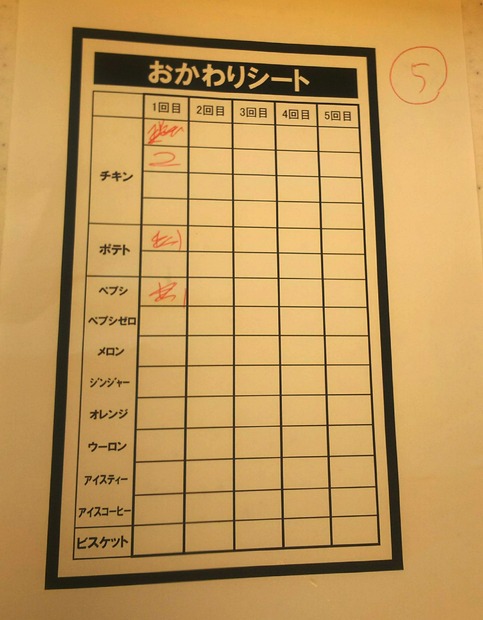 おかわりシート
5
1回目 2回目 3回目 4回目 5回目
チキン
2
ポテト
ペプシ
ペプシゼロ
メロン
ジンジャー
オレンジ
ウーロン
アイスティー
アイスコーヒー
ビスケット